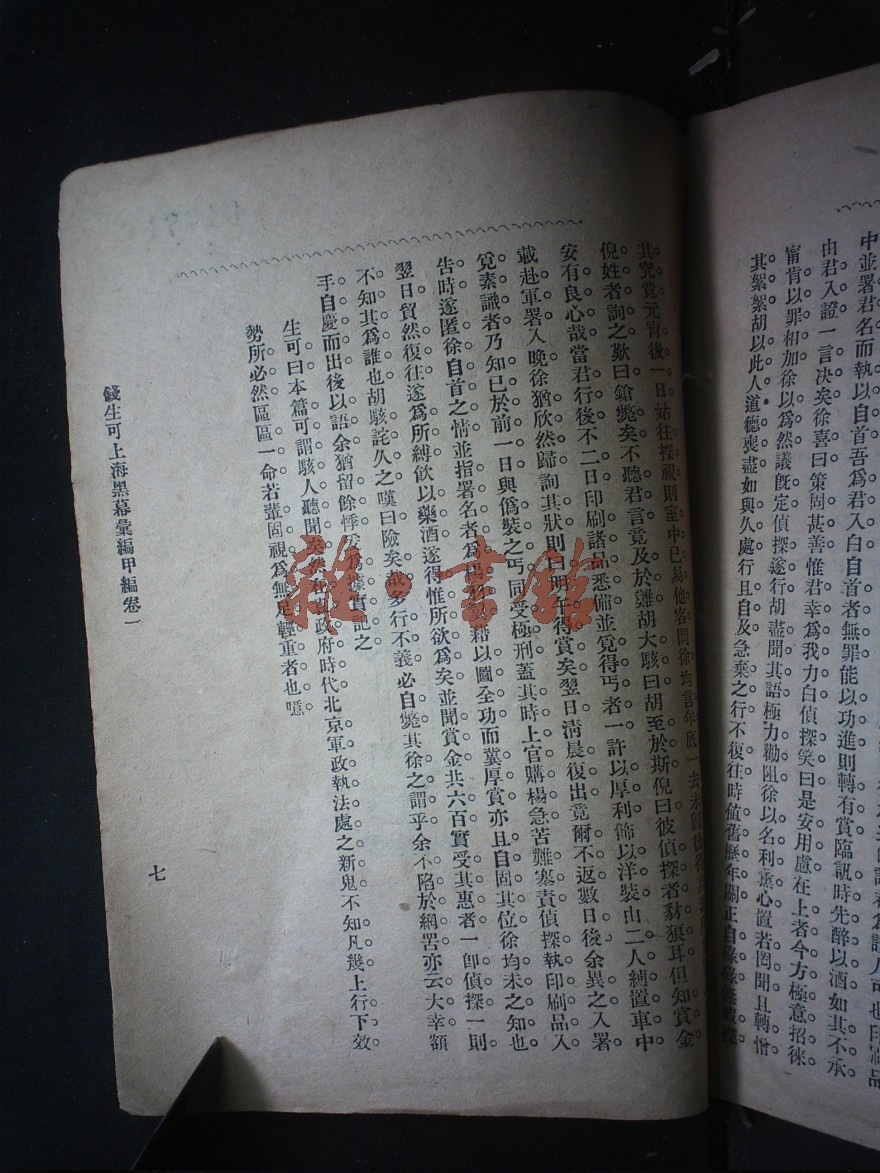 中並署君名而執以自首吾爲君入白自首者無罪能以功進則轉有賞臨訊時先醉以酒如其不承
由君入證一言決矣徐喜曰策固甚善惟君幸爲我力白偵探笑曰是安用慮在上者今方極意招徠
甯肯以罪相加徐以爲然議旣定偵探遂行胡盡聞其語極力勸阻徐以名利熏心置若罔聞且轉憎
其絮絮胡以此人道德喪盡如與久處行且自及急棄之行不復往時値舊歷年關正自碌碌無暇
其究竟元宵後一日始往探視則室中已易他客問徐均言年底一去未歸後得
倪姓者詢之歎曰鎗斃矣不聽君言竟及於難胡大駭曰胡至於斯倪曰彼偵探者豺狼耳但知賞金
安有良心哉當君行後不二日印刷諸品悉備並覓得丐者一許以厚利飾以洋裝由二人縛置車中
載赴軍署入晚徐猶欣然歸詢其狀則曰明午得賞矣翌日淸晨復出竟爾不返數日後余異之入署
覓素識者乃知已於前一日與僞裝之丐同受極刑蓋其時上官購楊急苦難塞責偵探執印刷品入
告時遂匿徐自首之情並指署名者爲楊藉以圖全功而冀厚賞亦且自固其位徐均未之知也
翌日貿然復往遂爲所縛飲以藥酒遂得惟所欲爲矣並聞賞金共六百實受其惠者一卽偵探一則
不知其爲誰也胡駭詫久之嘆曰險矣哉多行不義必自斃其徐之謂乎余不陷於網罟亦云大幸額
手自慶而出後以語余猶留餘悸爰爲據實記之
生可曰本篇可謂駭人聽聞矣然政府時代北京軍政執法處之新鬼不知凡幾上行下效
勢所必然區區一命若輩固視爲無足輕重者也噫
錢生可上海黑幕彙編甲編卷一
七
雜·書館